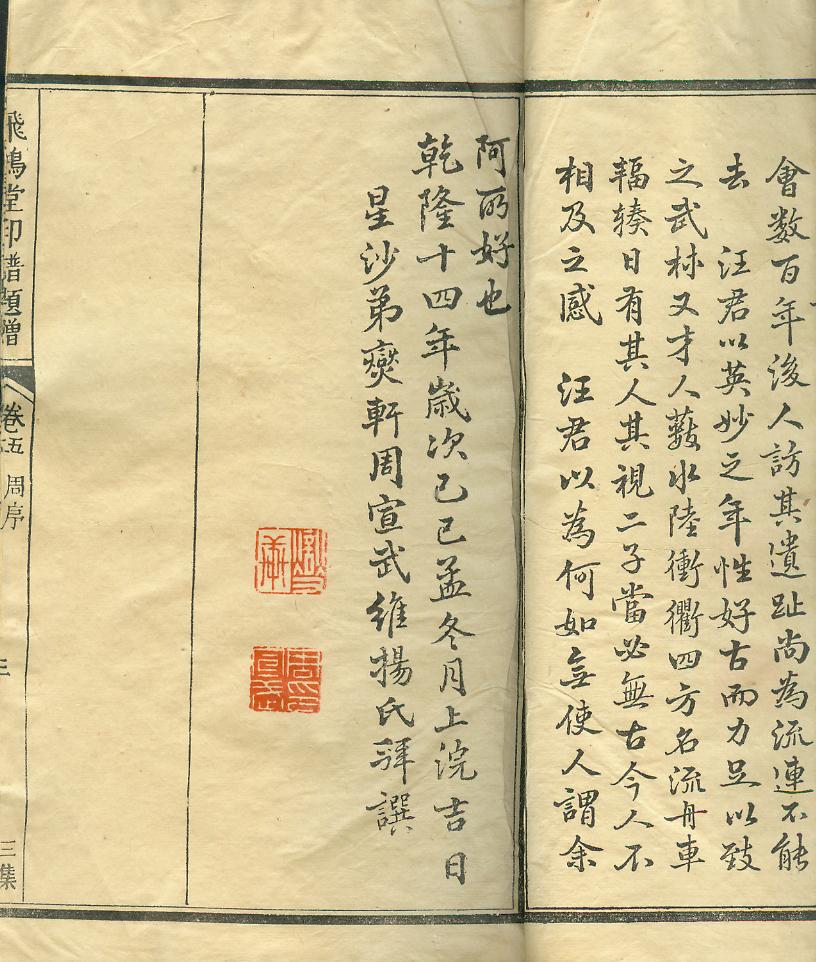 會数百年後人訪其遺趾尚為流連不能
去 汪君以英妙之年性好古而力足以致
之武林又才人藪水陸衝衢四方名流舟車
輻輳日有其人其視二子當必無古今人不
相及之感 汪君以為何如無使人謂余
阿所好也
乾隆十四年歲次己巳孟冬月上浣吉日
星沙弟爕軒周宣武維揚氏拜譔
飛鴻堂印譜題贈
卷五 周序
三
三集